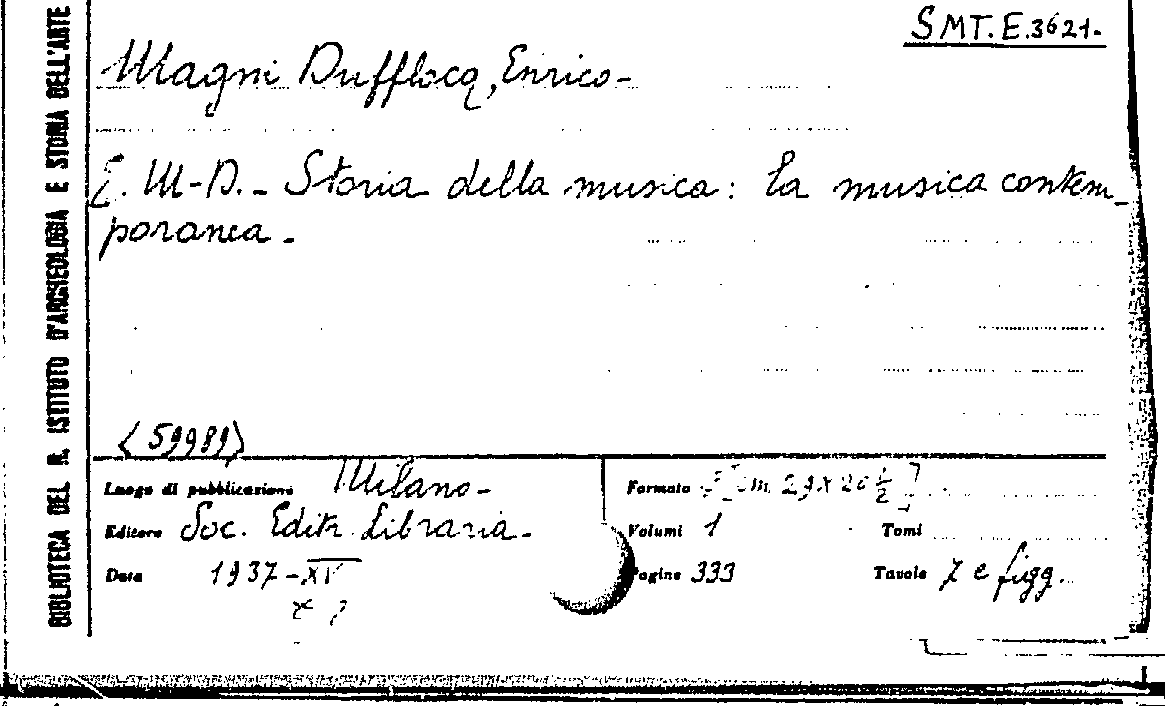 SMT.E.3621.
Magni Dufflocq, Enrico-
E. M-D. - Storia della musica: la musica contem-
poranea.-
(59989)
Luogo di pubblicazione Milano-
Editore Soc. Editr. Libraria.-
Data 1937-XV
Formato [cm. 29x20 1/2]
Volumi 1 Tomi
Pagine 333 Tavole 7 e figg.
BIBLIOTECA DEL R. ISTITUTO D'ARCHEOLOGIA E STORIA DELL'ARTE